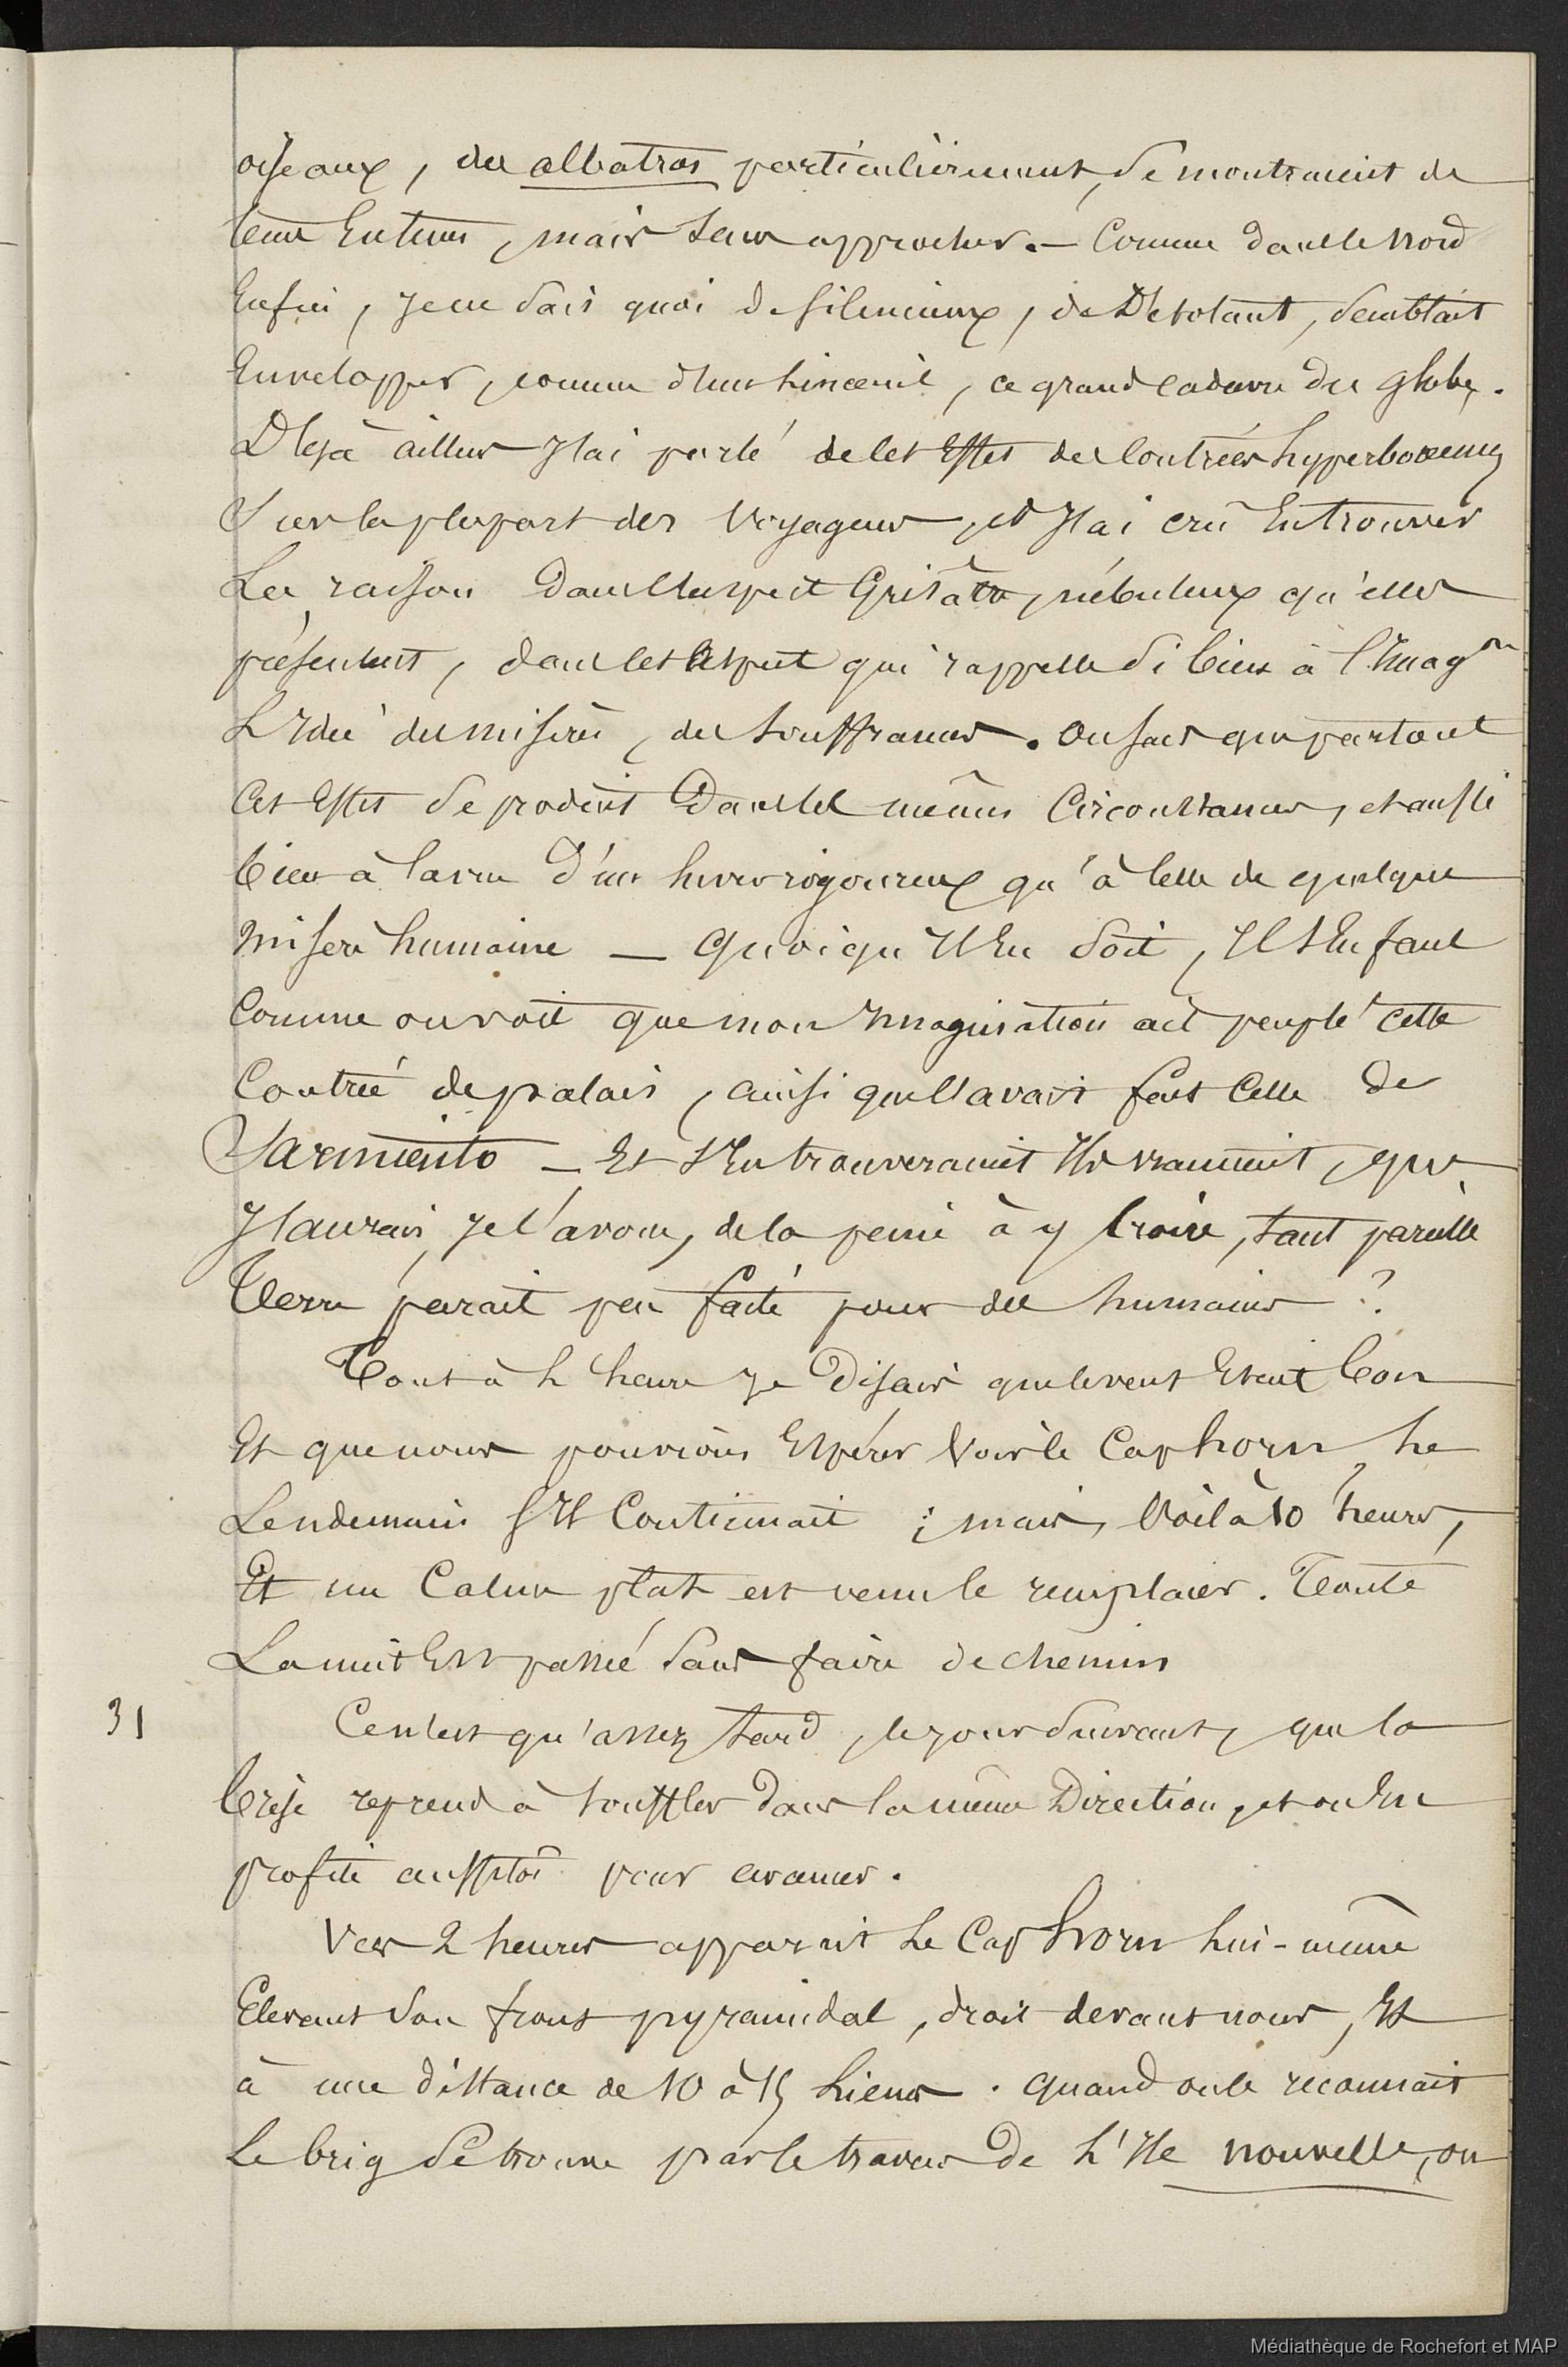 oiseaux, des albatros particulièrement, se montraient de
tems En tems, mais sans approcher. — Comme dans le Nord
Enfin, je ne sais quoi de silencieux, de Désolant, semblait
Envelopper, comme d'un linceuil, ce grand cadavre du globe.
Déjà ailleurs J'ai parlé de cet Effet des Contrées hyperboreennes
Sur la plupart des Voyageurs, et J'ai crû En trouver
La raison Dans l'aspect Grisâtre, nébuleux qu'elles
présentent, dans cet aspect qui rappelle si bien à l'Imagon
L'Idée de misère, de souffrances. On sait que partout
Cet Effet se produit Dans les mêmes Circonstances, et aussi
bien à la vue D'un hiver rigoureux qu'à celle de quelque
misère humaine — Quoiqu'Il En soit, Il s'En faut
Comme on voit que mon Imagination ait peuplé cette
Contrée de palais, ainsi qu'Elle avait fait Celle de
Sarmiento — Et s'En trouveraient Ils vraiment, que
J'aurais, Je l'avoue, de la peine à y Croire, tant pareille
Terre parait peu faite pour des humains ?
Tout à L'heure Je Disais que le vent Etait bon
Et que nous pouvions Espérer Voir le Cap horn, Le
Lendemain s'Il Continuait ; mais, Voilà 10 heures,
Et un Calme plat est venu le remplacer. Toute
La nuit Est passée sans faire de chemin
31 Ce n'est qu'assez tard, le jour suivant, que la
brise reprend à souffler dans la même Direction, et on En
profite aussitôt pour avancer.
Vers 2 heures apparait Le Cap horn Lui-même
Elevant son front pyramidal, droit devant nous, Et
à une distance de 10 à 15 Lieues. Quand on le reconnait
Le brig se trouve par le travers de L'Ile nouvelle, on